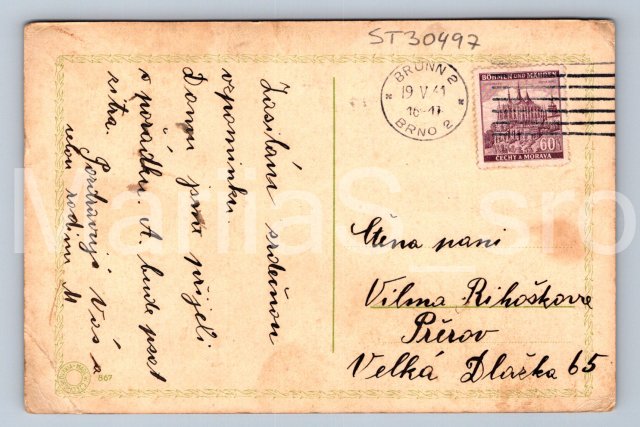 ST30497
BRÜNN 2
19 V 41
16-17
BRNO 2
BÖHMEN UND MÄHREN
60
ČECHY A MORAVA
Zasílám srdečnou
vzpomínku.
Domů jsme přijeli
v pořádku. A. bude psat
sitra.
Pozdravuji Vás a
celou rodinu M
Ctěna paní
Vilma Rihoškova
Přerov
Velká Dlažka 65
867
MariiaS_sro